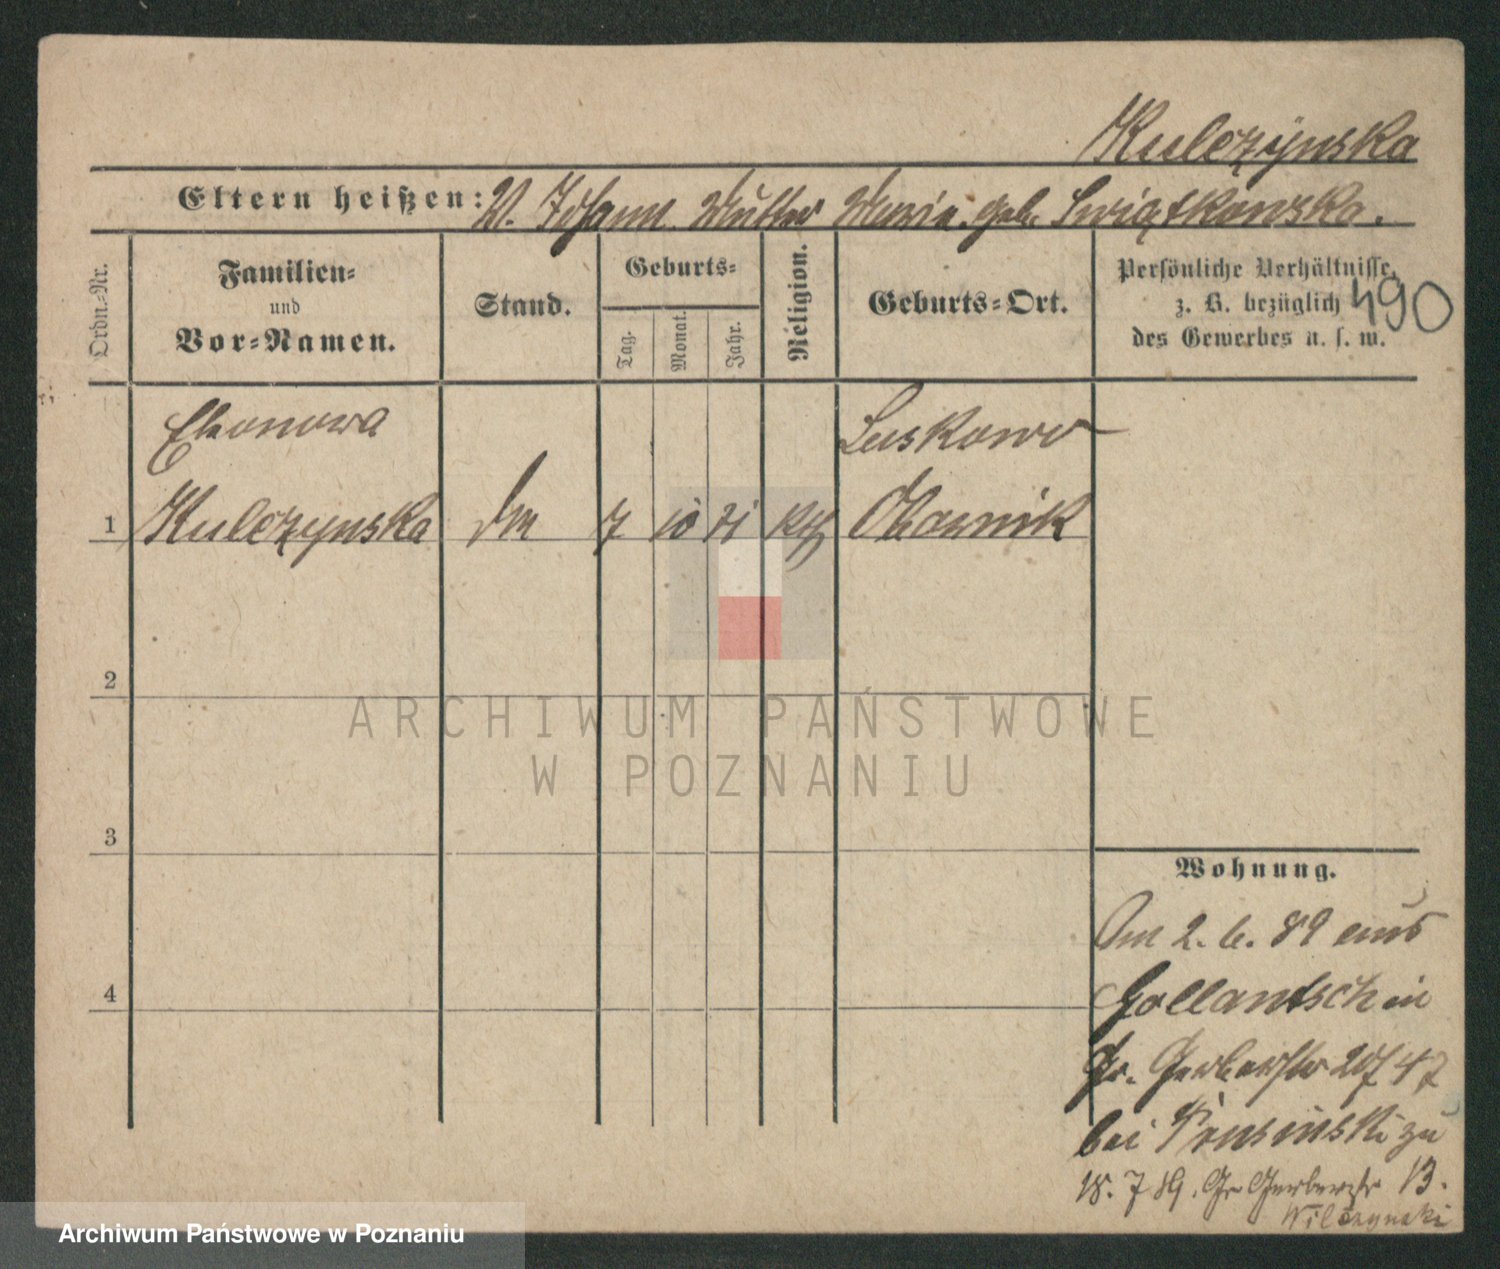 Kulczÿnska
Eltern heißen: V. Johann Mutter Maria geb. Swiątkowska.
Ordn.-Nr.
Familien-
und
Vor-Namen.
Stand.
Geburts-
Tag.
Monat.
Jahr.
Religion.
Geburts-Ort.
Persönliche Verhältnisse,
z. B. bezüglich
des Gewerbes u. s. w.
490
Eleonora
Luskowo
1 Kulczynska 7 10 71 kth Obornik
2
3
4
Wohnung.
Am 2. 6. 89 aus
Gollantsch in
Gr. Gerberstr 47
bei zu
18. 7 89. Gr Gerberstr 13.
Wilczynski
ARCHIWUM PAŃSTWOWE
W POZNANIU
Archiwum Państwowe w Poznaniu